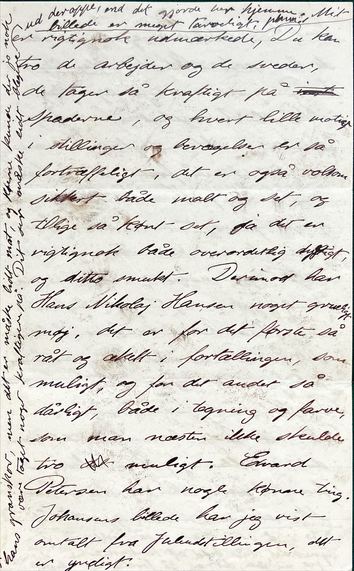 ud deroppe, end det gjorde her hjemme. Mit
billede er meget farveligt,
er rigtignok udmærkede, Du kan
tro de arbejder og de sveder,
de tager så kraftigt på
spaderne, og hvert lille
i stillinger og bevægelser er så
fortræffeligt, det er også voldsom
sikkert både malt og set, og
tillige så kønt set, ja det er
rigtignok både overordetlig dygtigt,
og ditto smukt. Derimod har
Hans Nikolaj Hansen noget grueligt
møg, det er for det første så
råt og æklelt i fortællingen, som
muligt, og for det andet så
dårligt, både i tegning og farve,
som man næsten ikke skulde
tro muligt. Eward
Petersen har nogle kønne ting.
Johansens billede har jeg vist
omtalt fra Juleudstillingen, det
er yndigt.
hans granskov, men det er måske lidt mat, og kunne der jo nok
være taget noget kraftigere på. Det